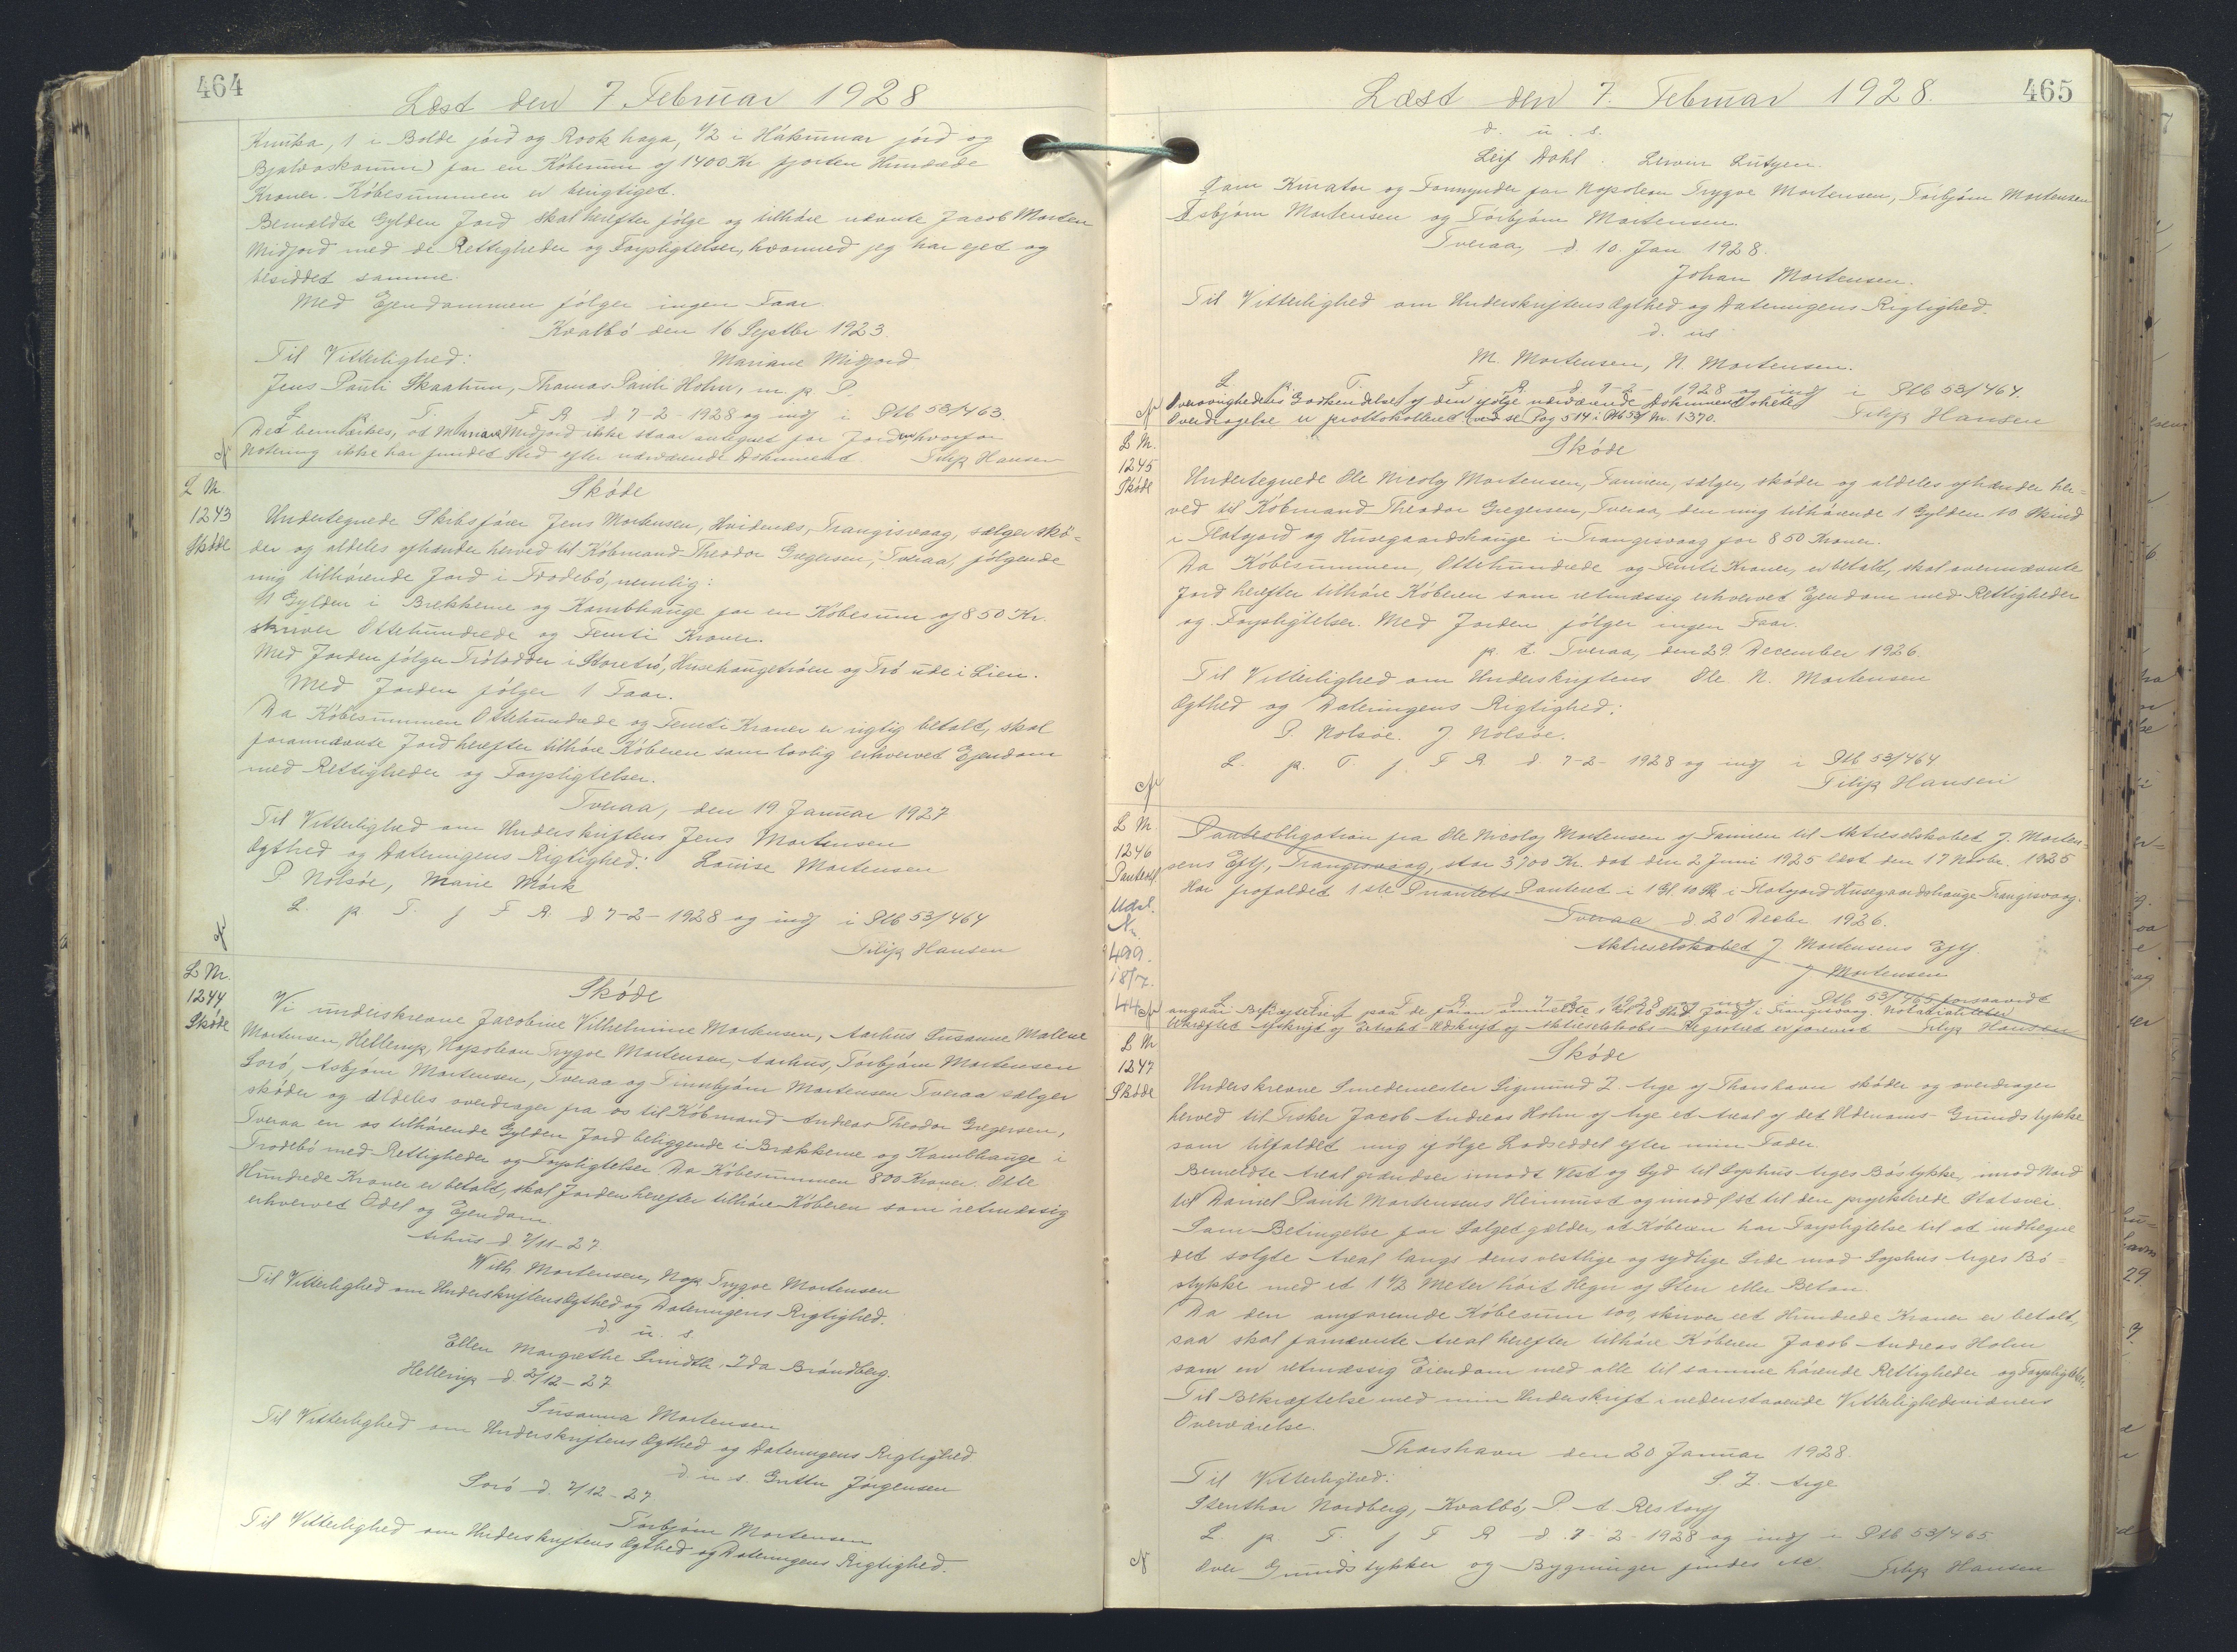 464
Læst den 7 Februar 1928
Kruka, 1 i Bolde jørd og Rook haga, 1/2 i Hákunnar jørd og
Bjalvaskorunn) for en Købesum af 1400 Kr fjorten Hundrede
Kroner. Købesummen er berigtiget.
Bemældte Gylden Jord skal herefter følge og tilhøre nævnte Jacob Morten
Midjord med de Rettigheder og Forpligtelser, hvormed jeg har ejet og
besiddet samme.
Med Ejendommen følger ingen Faar.
Kvalbø den 16 Septbr 1923.
Til Vitterlighed: Mariane Midjord
Jens Pauli Skaalum, Thomas Pauli Holm, m. p. P.
L p. T. f F R d 7-2-1928 og indf i Ptb 53/463.
Det bemærkes, at Mariane Midjord ikke staar antegnet for Jorden hvorfor
Notering ikke har fundet sted efter nærværende Dokument. Filip Hansen
L Nr.
1243
Skøde
Skøde
Undertegnede Skibsfører Jens Mortensen, Hvidenæs, Trangisvaag, sælger skø-
der og aldeles afhænder herved til Købmand Theodor Gregersen, Tveraa, følgende
mig tilhørende Jord i Frodebø, nemlig:
1 Gylden i Brekkerne og Kambhauge for en Købesum af 850 Kr.
skriver Ottehundrede og Femti Kroner.
Med Jorden følger Trølodder i Storetrø, Husehaugetrøen og Trø ude i Lien.
Med Jorden følger 1 Faar.
Da Købesummen Ottehundrede og Femti Kroner er rigtig betalt, skal
forannævnte Jord herefter tilhøre Køberen som lovlig erhvervet Ejendom
med Rettigheder og Forpligtelser.
Tveraa, den 19 Januar 1927
Til Vitterlighed om Underskriftens Jens Mortensen
Ægthed og Dateringens Rigtighed: Louise Mortensen
P Nolsøe, Marie Mørk
L. p T. f F R. d 7-2-1928 og indf i Ptb 53/464
Filip Hansen
L Nr.
1244
Skøde
Skøde
Vi underskrevne Jacobine Vilhelmine Mortensen, Aarhus Susanne Malene
Mortensen, Hellerup, Napoleon Trygve Mortensen, Aarhus, Torbjørn Mortensen
Sorø, Asbjørn Mortensen, Tveraa og Finnbjørn Mortensen Tveraa sælger
skøder og aldeles overdrager fra os til Købmand Andreas Theodor Gregersen,
Tveraa en os tilhørende Gylden Jord beliggende i Brækkerne og Kambhauge i
Frodebø med Rettigheder og Forpligtelser Da Købesummen 800 Kroner. Otte
Hundrede Kroner er betalt, skal Jorden herefter tilhøre Køberen som retmæssig
erhvervet Odel og Ejendom.
Arhus d. 7/11-27
Wilh. Mortensen, Nap Trygve Mortensen
Til Vitterlighed om Underskriftens Ægthed og Dateringens Rigtighed.
d. u. s.
Ellen Margrethe Smidth, Ida Brøndberg.
Hellerup d. 2/12-27
Susanna Mortensen
Til Vitterlighed om Underskriftens Ægthed og Dateringens Rigtighed
d. u. s. Jørgensen
Sorø d. 7/12-27
Torbjørn Mortensen
Til Vitterlighed om Underskriftens Ægthed og Dateringens Rigtighed.
465
Læst den 7. Februar 1928.
d. u. s.
Leif Dahl.
Som Kurator og Formynder for Napoleon Trygve Mortensen, Torbjørn Mortensen
Esbjørn Mortensen og Torbjørn Mortensen.
Tveraa, d. 10. Jan 1928.
Johan Mortensen.
Til Vitterlighed om Underskriftens Ægthed og Dateringens Rigtighed.
d. us
M. Mortensen, N. Mortensen.
L. p. T. f. F R. d 7-2-1928 og indf i Ptb 53/464.
Overøvrighedens Godkendelse af den ifølge nærværende Dokument skete
Overdragelse er prottokolleret ved se Pag 514 i Ptb 53/ Nr. 1370. Filip Hansen
L Nr.
1245
Skøde
Skøde
Undertegnede Ole Nicolaj Mortensen, Famien, sælger, skøder og aldeles afhænder her-
ved til Købmand Theodor Gregersen, Tveraa, den mig tilhørende 1 Gylden 10 Skind
i Flatgjord og Husegaardshauge i Trangisvaag for 850 Kroner.
Da Købesummen, Ottehundrede og Femti Kroner, er betalt, skal ovennævnte
Jord herefter tilhøre Køberen som retmæssig erhvervet Ejendom med Rettigheder
og Forpligtelser. Med Jorden følger ingen Faar.
p. t. Tveraa, den 29. December 1926.
Til Vitterlighed om Underskriftens Ole N. Mortensen
Ægthed og Dateringens Rigtighed:
P. Nolsøe. J Nolsøe.
L. p. T. f. F R. d. 7-2-1928 og indf i Ptb 53/464
Filip Hansen
L Nr
1246
Panteobl.
Udsl.
Nr.
499.
18/7.
44
Panteobligation fra Ole Nicolaj Mortensen af Famien til Aktieselskabet J. Morten-
sens Eftf, Trangisvaag, stor 3700 Kr. dat den 2 Juni 1925 læst den 17 Novbr. 1925
Har frafaldet 1ste Prioritets Panteret i 1 Gl. 10 Sk i Flatgjord Husegaardshauge Trangisvaag.
Tveraa d 20 Decbr 1926.
Aktieselskabet J Mortensens Eftf.
J Mortensen
L. p. T f F R. d 7-2-1928 og indf i Ptb 53/465 forsaavidt
angaar Bekræftelsen paa de foran anmeldte 1 Gl 10 Skd Jord i Trangisvaag. Notarialiter
bekræftet Afskrift af Udskrift af Aktieselskabs-Registret er forevist Filip Hansen
L Nr
1247
Skøde
Skøde
Underskrevne Smedemester Sigmund Z. Arge af Thorshavn skøder og overdrager
herved til Fisker Jacob Andreas Holm af Arge et Areal af det Udenoms-Grundstykke
som tilfaldet mig ifølge Lodseddel efter min Fader.
Bemeldte Areal grændser imod Vest og Syd til Sophus Arges Bøstykke, imod Nord
til Daniel Pauli Mortensens Heimrust og imod Øst til den projekterede Statsvei.
Som Betingelse for Salget gælder, at Køberen har Forpligtelse til at indhegne
det solgte Areal langs dens vestlige og sydlige Side mod Sophus Arges Bø-
stykke med et 1 1/2 Meter høit Hegn af Sten eller Beton.
Da den omforenede Købesum 100, skriver eet Hundrede Kroner er betalt,
saa skal fornævnte Areal herefter tilhøre Køberen Jacob Andreas Holm
som en retmæssig Eiendom med alle til samme hørende Rettigheder og Forpligtelser.
Til Bekræftelse med min Underskrift i nedenstaaende Vitterlighedsvidners
Overværelse.
Thorshavn den 20 Januar 1928.
Til Vitterlighed: S. Z. Arge
Stenthor Nordberg, Kvalbø, P A Restorff
L. p T. f F R d. 7-2-1928 og indf i Ptb 53/465
Over Grundstykker og Bygninger findes etc Filip Hansen